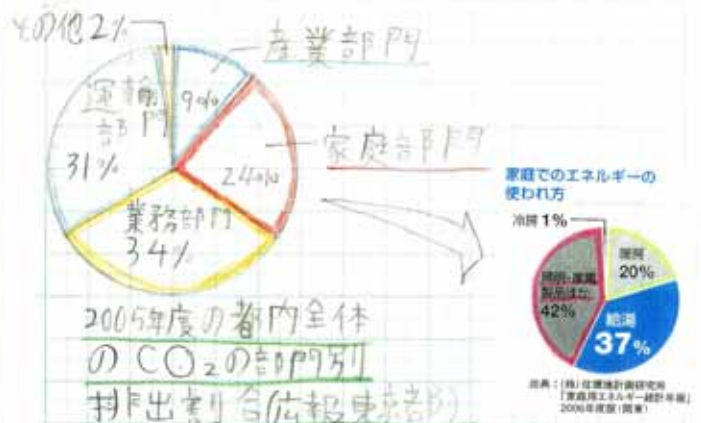 その他2%
産業部門
9%
運輸
部門
31%
家庭部門
24%
業務部門
34%
2005年度の都内全体
のCO₂の部門別
排出割合(広報東京都)
家庭でのエネルギーの
使われ方
冷房1%
暖房
20%
照明・家電
製品ほか
42%
給湯
37%
出典:(株)住環境計画研究所
「家庭用エネルギー統計年報」
2006年度版(関東)